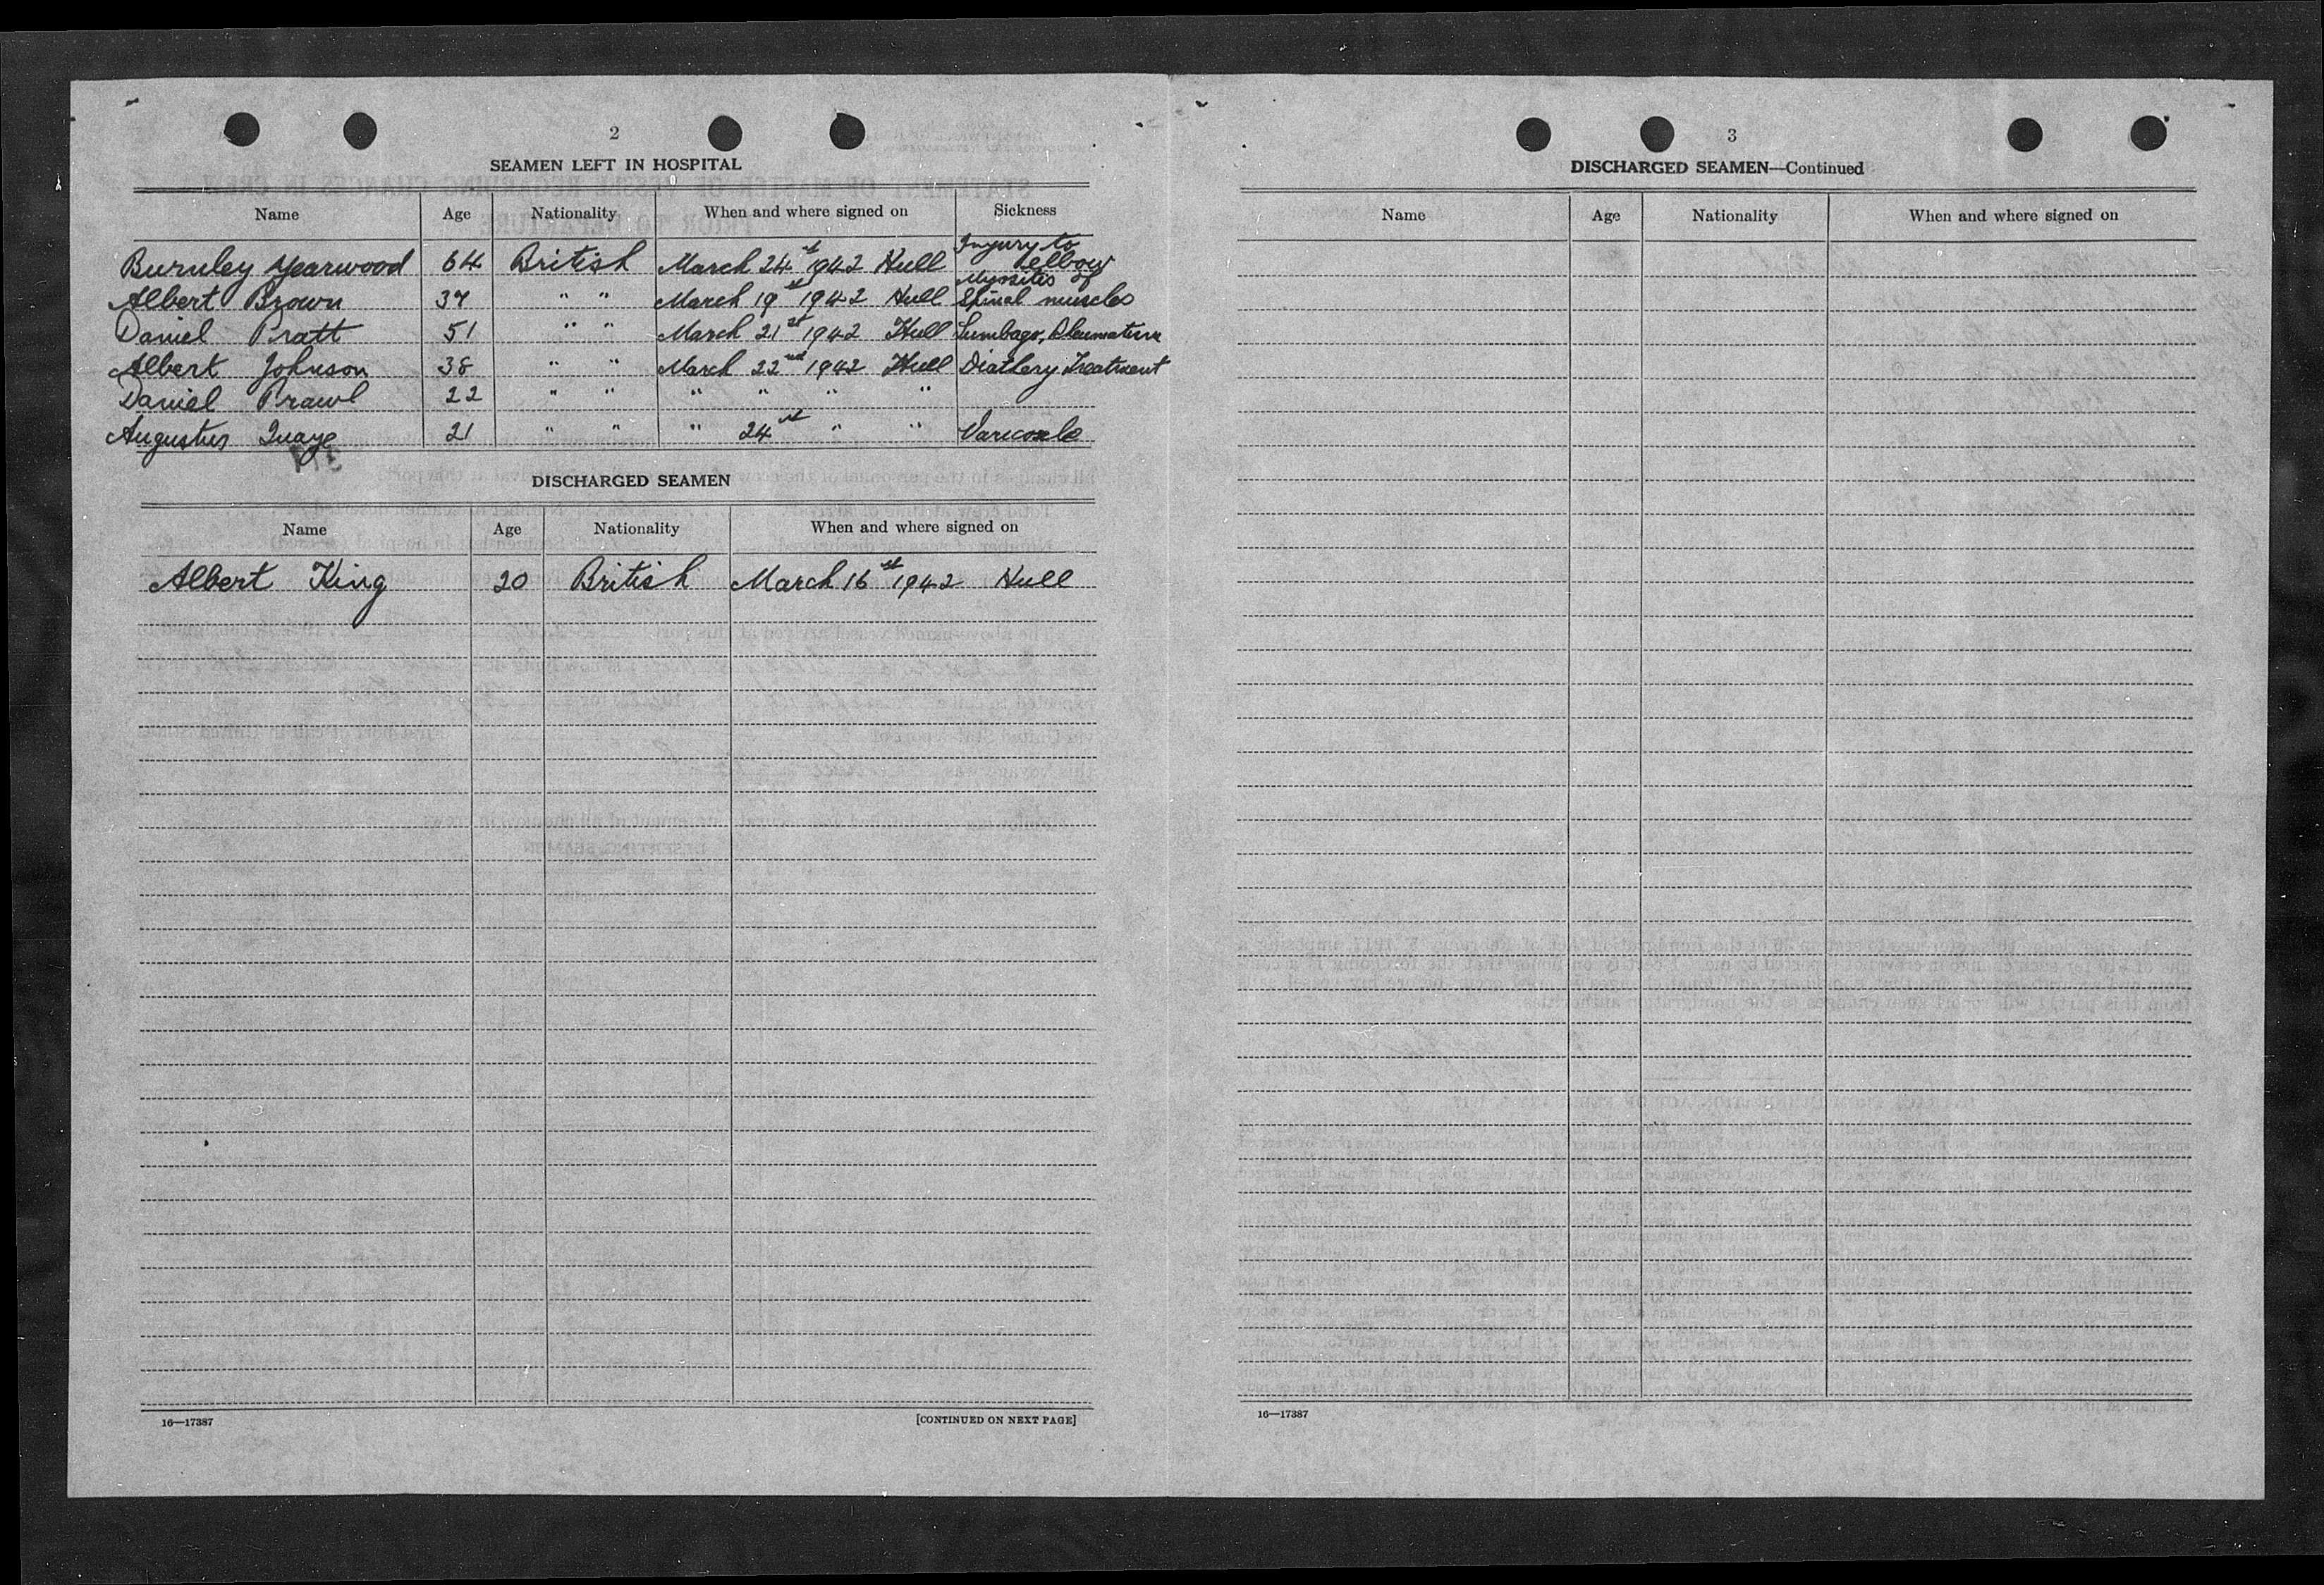 2
SEAMEN LEFT IN HOSPITAL
Name Age Nationality When and where signed on Sickness
Burnley Yearwood 64 British March 24st 1942 Hull Injury to elbow
Albert Brown 37 " " March 19st 1942 Hull Myositis of Spinal muscles
Daniel Pratt 51 " " March 21st 1942 Hull Lumbago, Rheumatism
Albert Johnson 38 " " March 22nd 1942 Hull Diathery Treatment
Daniel Prawl 22 " " " " " "
Augustus Quaye 21 " " " 24st " "
DISCHARGED SEAMEN
Name Age Nationality When and where signed on
Albert King 20 British March 16st 1942 Hull
16—17387 [CONTINUED ON NEXT PAGE]
3
DISCHARGED SEAMEN—Continued
Name Age Nationality When and where signed on
16—17387